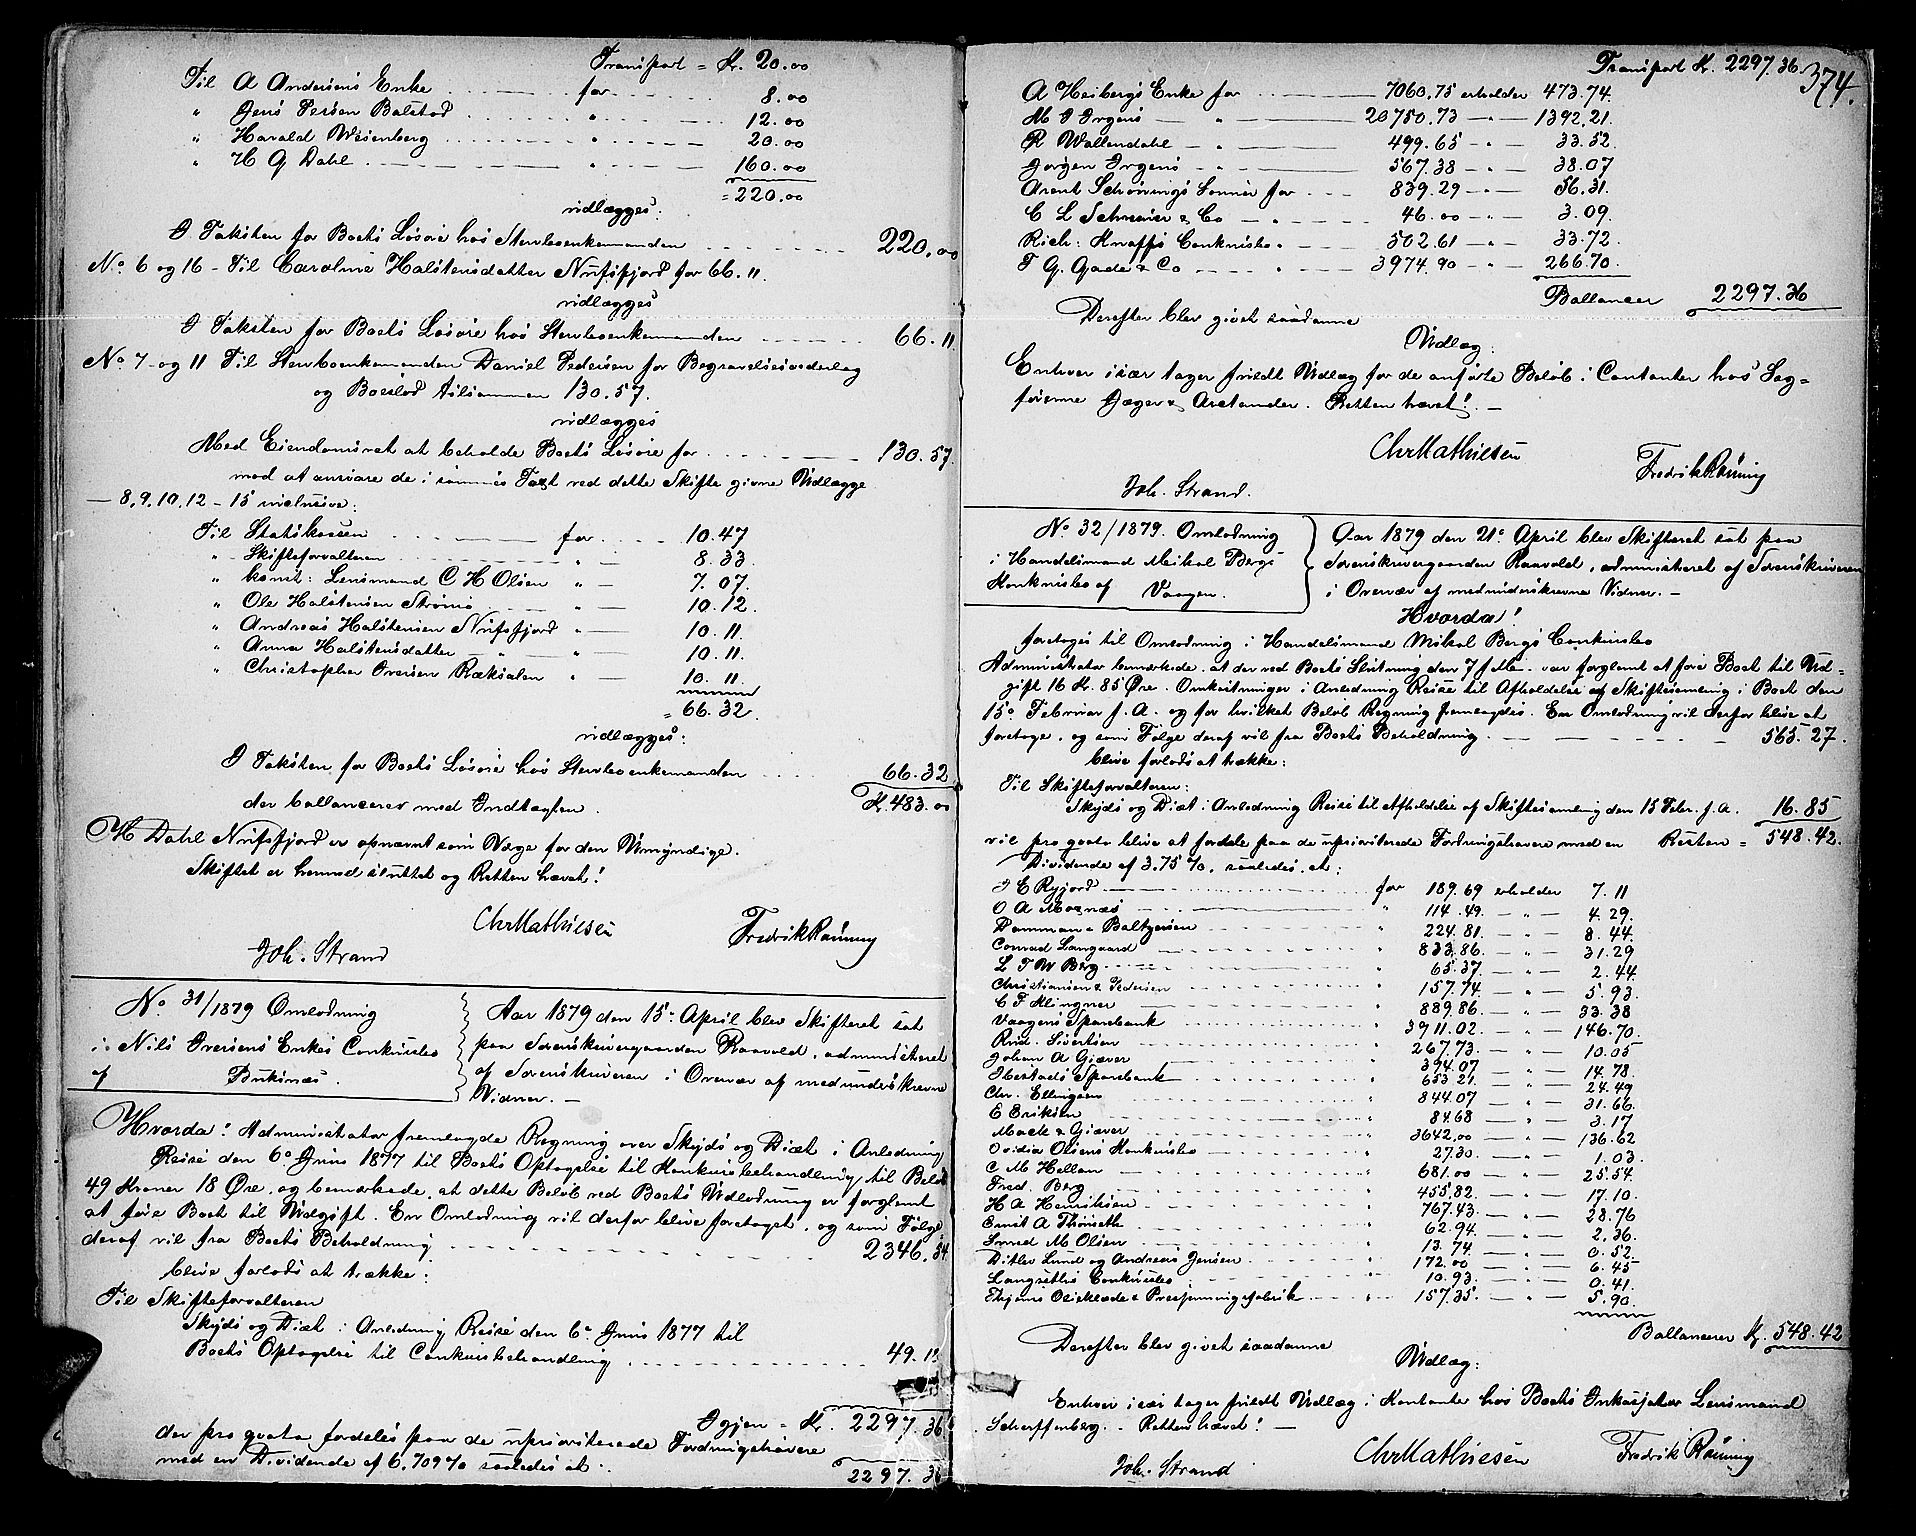 Transport = Kr. 20.00
Til A Andersens Enke for 8.00
" Jens Persen Balstad " 12.00
" Harald Wesenberg " 20.00
" H G Dahl " 160.00
= 220.00
vidlægges:
I Taksten for Boets Løsøre hos Stervboenkemanden 220.00
No 6 og 16 - Til Caroline Halstensdatter Nufsfjord for 66.11
vidlægges
I Taksten for Boets Løsøre hos Stervboenkemanden 66.11
No 7 og 11 Til Stervboenkemanden Daniel Pedersen for Begravelsesvederlag
og Boeslod tilsammen 130.57.
vidlægges
Med Eiendomsret at beholde Boets Løsøre for 130.57.
mod at ansvare de i sammes Taxt ved dette Skifte givne Udlægge
— 8, 9, 10, 12 - 15 inclusive:
Til Statskassen for 10.47
" Skifteforvalteren " 8.33
" konst: Lensmand C H Olsen " 7.07
" Ole Halstensen Strømø " 10.12
" Andreas Halstensen Nufsfjord " 10.11
" Anna Halstensdatter " 10.11
" Christopher Iversen Ræksalen " 10.11
= 66.32
vidlægges:
I Taksten for Boets Løsøre hos Stervboenkemanden 66.32
der ballancerer med Indtægten. Kr. 483.00
H Dahl Nufsfjord er opnævnt som Værge for den Umyndige.
Skiftet er hermed sluttet og Retten hævet!
Chr Mathiesen
Joh. Strand Fredrik Rønning
No 31/1879 Omlodning
i Nils Iversens Enkes Conkursbo
af Buksnæs.
Aar 1879 den 15: April blev Skifteret sat
paa Sorenskrivergaarden Raavold, administreret
af Sorenskriveren i Overvær af medunderskrevne
Vidner. —
Hvorda! Administrator fremlagde Regning over Skyds og Diæt i Anledning
Reise den 6o Juni 1877 til Boets Optagelse til Konkursbehandling til Beløb
49 Kroner 18 Øre, og bemærkede, at dette Beløb ved Boets Udlodning er forglemt
at føre Boet til Udgift. En Omlodning vil derfor blive foretaget, og som Følge
deraf vil fra Boets Beholdning 2346.54
blive forlods at trække:
Til Skifteforvalteren
Skyds og Diæt i Anledning Reise den 6o Juni 1877 til
Boets Optagelse til Conkursbehandling 49.18
Igjen = Kr. 2297.36
der pro qvota fordeles paa de upriviterede Fordringshavere
med en Dividende af 6,709 % saaledes at: 2297.36
374.
Transport Kr. 2297.36
A Heibergs Enke for 7060.75 erholder 473.74.
M I Irgens — " — 20750.73 — " — 1392.21
R Wallendahl — " — 499.65 — " — 33.52
Jørgen Irgens — " — 567.38 — " — 38.07
Arent Schønings Sønner for 839.29 — " — 56.31
C L Schreiner & Co — " — 46.00 — " — 3.09
Rich: Knaffs Conkursbo " 502.61 — " — 33.72
F G. Gade & Co " 3974.90 — " — 266.70
Ballancer 2297.36
Derefter blev givet saadanne
Udlæg:
Enhver især tager frieldt Udlæg for de anførte Beløb i Contanter hos Sag-
førerne Jæger & Arctander. Retten hævet! —
Chr Mathiesen
Joh. Strand. Fredrik Rønning
No 32/1879. Omlodning
i Handelsmand Meikal Bergs
Konkursbo af Vaagen.
Aar 1879 den 21o April blev Skifteret sat paa
Sorenskrivergaarden Raavold, administreret af Sorenskriveren
i Overvær af medunderskrevne Vidner. —
Hvorda!
foretoges til Omlodning i Handelsmand Mikal Bergs Conkursbo
Administrator bemærkede at der ved Boets Slutning den 7 f Mt. var forglemt at føre Boet til Ud-
gift 16 Kr. 85 Øre. Omkostninger i Anledning Reise til Afholdelse af Skiftesamling i Boet den
15o Februar f. A. og for hvilket Beløb Regning fremlagdes. En Omlodning vil derfor blive at
foretage, og som Følge deraf vil fra Boets Beholdning. 565.27.
blive forlods at trække:
Til Skifteforvalteren:
Skyds og Diæt i Anledning Reise til Afholdelse af Skiftesamling den 15 Febr. f. A. 16.85
vil pro qvota blive at fordele paa de upriviterede Fordringshavere med en Resten = 548.42.
Dividende af 3.75 %, saaledes, at:
I E Ryjord for 189.69 erholder 7.11
O A Moenæs " 114.49. — " — 4.29.
Damman & Baltzersen " 224.81. — " — 8.44.
Conrad Langaard " 833.86. — " — 31.29
L T W Berg " 65.37. — " — 2.44
Christiansen & Pedersen " 157.74 — " — 5.93.
C F Klingner " 889.86. — " — 33.38
Vaagens Sparebank " 3911.02. — " — 146.70.
Rud. Sivertsen " 267.73. — " — 10.05
Johan A Giæver " 394.07 — " — 14.78.
Ibestads Sparebank " 653.21. — " — 24.49
Chr. Ellingsen " 844.07 — " — 31.66
E Eriksen " 84.68 — " — 3.17
Mack & Giæver " 3642.00 — " — 136.62
Ovidia Olsens Konkursbo " 27.30. — " — 1.03.
C M Hellan " 681.00 — " — 25.54.
Fred. Berg " 455.82. — " — 17.10.
H A Henriksen " 767.43. — " — 28.76
Emil A Thorseth " 62.94. — " — 2.36.
Svend M Olsen " 13.74. — " — 0.52.
Ditlev Lund og Andreas Jensen " 172.00 — " — 6.45
Langseths Conkursbo " 10.93. — " — 0.41.
Thjems Oljeklæde & Presenningsfabrik " 157.35. — " — 5.90.
Ballancerer Kr. 548.42
Derefter blev givet saadanne
Udlæg:
Enhver især tager frieldt Udlæg i Kontanter hos Boets Inkassator Lensmand
Scharffenberg. - Retten hævet! —
Chr Mathiesen
Joh. Strand Fredrik Rønning